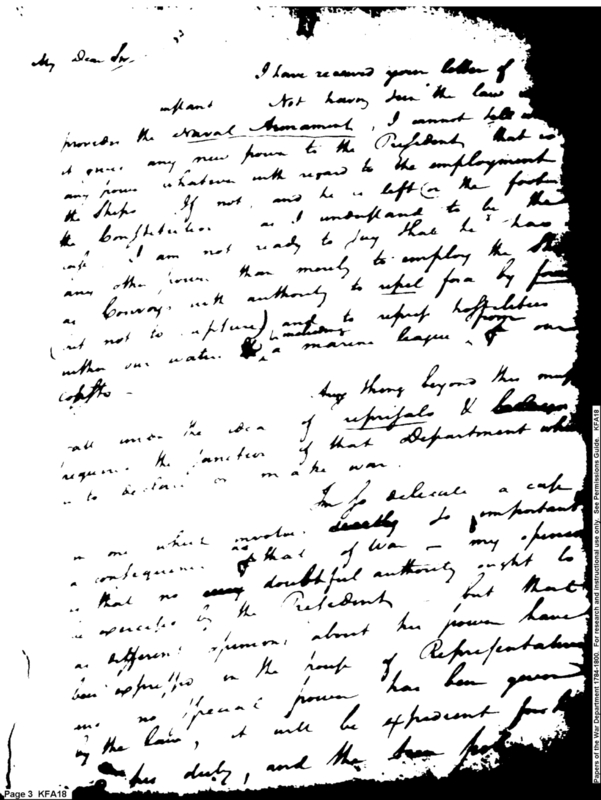 My Dear Sir.
I have received your letter of
instant Not having seen the law
provides the Naval Armament, I cannot tell
it gives any new power to the President that is
any power whatever with regard to the employment
the Ships. If not, and he is left on the
the Constitution as I understand to be the
case I am not ready to say that he has
any other power than merely to employ the
as Convoys with authority to repel force by force
(but not to capture) and to repress hostilities
within our waters including a marine league from our
coasts -
Any thing beyond this must
fall under the idea of reprisals &
requires the sanction of that Department
to declare or make war.
In so delicate a case
in one which involves so important
a consequence as that of War - my opinion
is that no doubtful authority ought to
be exercised by the President but that
as different opinions about his power have
been expressed in the house of Representatives
and no special power has been given
by the law, it will be expedient for
his duty, and the
Page 3 KFA18
Papers of the War Department 1784-1800. For research and instructional use only. See Permissions Guide. KFA18